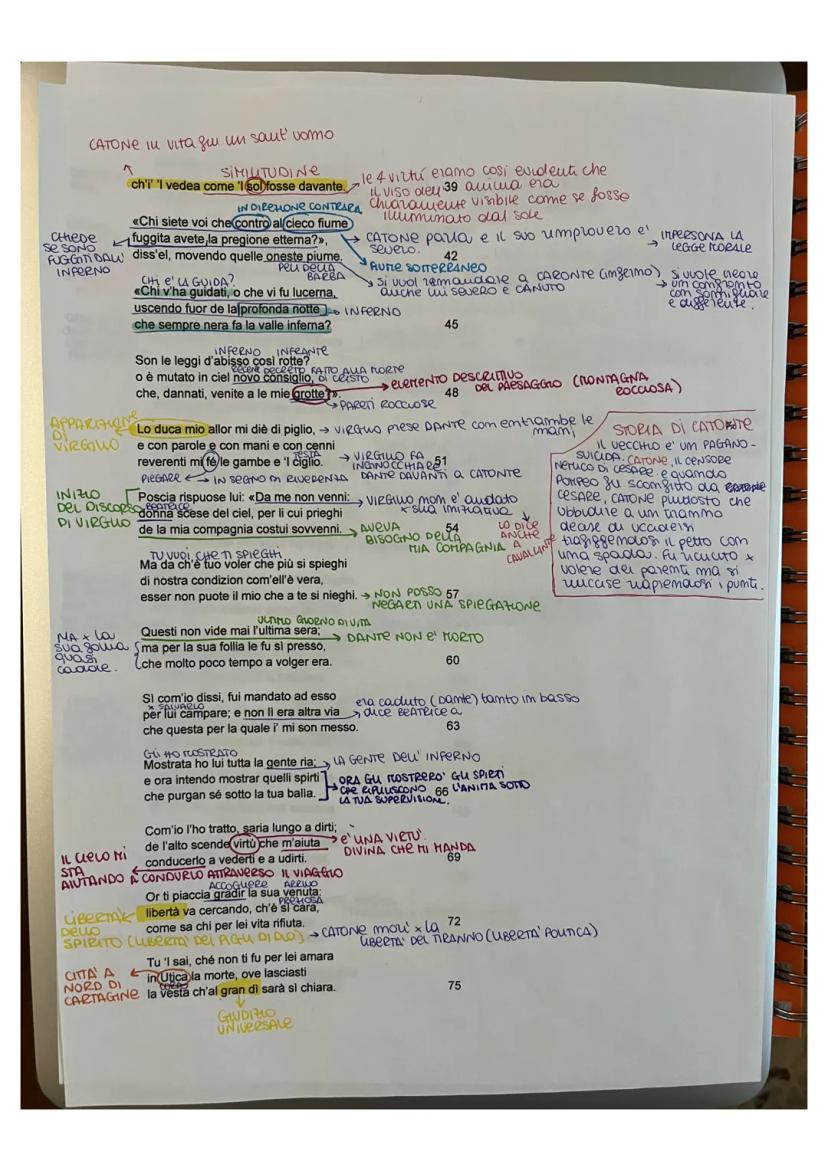 CATONE IN VITA FU UN SANT' UOMO
SIMILITUDINE
ch'i' 'l vedea come 'l sol fosse davante.
39
le 4 virtù erano così evidenti che
il viso dell' anima era
chiaramente visibile come se fosse
illuminato dal sole
IN DIREZIONE CONTRARIA
«Chi siete voi che contro al cieco fiume
fuggita avete la pregione etterna?»,
diss'el, movendo quelle oneste piume.
42
CHIEDE
SE SONO
FUGGITI DALL'
INFERNO
CATONE parla e il suo rimprovero e'
severo.
IMPERSONA LA
LEGGE MORALE
FIUME SOTTERRANEO
PELI DELLA
BARBA
si vuol remandare a CARONTE (inferno)
anche lui SEVERO E CANUTO
si vuole creare
un confronto
con somiglianze
e differenze.
CHI E' LA GUIDA?
«Chi v'ha guidati, o che vi fu lucerna,
uscendo fuor de la profonda notte
che sempre nera fa la valle inferna?
45
INFERNO
INFERNO INFRANTE
Son le leggi d'abisso così rotte?
RECENTE DECRETO FATTO ALLA MORTE
DI CRISTO
o è mutato in ciel novo consiglio,
che, dannati, venite a le mie grotte?».
48
ELEMENTO DESCRITTIVO
DEL PAESAGGIO (MONTAGNA
ROCCIOSA)
PARETI ROCCIOSE
APPARIZIONE
DI
VIRGILIO
Lo duca mio allor mi diè di piglio,
e con parole e con mani e con cenni
reverenti mi fé le gambe e 'l ciglio.
51
VIRGILIO PRESE DANTE con entrambe le
mani,
TESTA
VIRGILIO FA
INGINOCCHIARE
DANTE DAVANTI A CATONTE
PIEGARE
IN SEGNO DI RIVERENZA
STORIA DI CATONTE
IL VECCHIO E' UN PAGANO-
SUICIDA. CATONE, IL CENSORE
NEMICO DI CESARE. E quando
POMPEO fu sconfitto da
CESARE, CATONE piuttosto che
ubbidire a un tiranno
decise di uccidersi
trafiggendosi il petto con
una spada. Fu ricucito x
volere dei parenti ma si
riuccise riaprendosi i punti.
INIZIO
DEL DISCORSO
DI VIRGILIO
Poscia rispuose lui: «Da me non venni:
BEATRICE
donna scese del ciel, per li cui prieghi
de la mia compagnia costui sovvenni.
54
VIRGILIO non e' andato
x sua iniziativa
LO DICE
ANCHE
A
CAVALCANTE
AVEVA
BISOGNO DELLA
MIA COMPAGNIA
TU VUOI CHE TI SPIEGHI
Ma da ch'è tuo voler che più si spieghi
di nostra condizion com'ell'è vera,
esser non puote il mio che a te si nieghi.
57
NON POSSO
NEGARTI UNA SPIEGAZIONE
ULTIMO GIORNO DI VITA
Questi non vide mai l'ultima sera;
ma per la sua follia le fu sì presso,
che molto poco tempo a volger era.
60
DANTE NON E' MORTO
MA x LA
SUA FOLLIA
QUASI
CADDE.
Sì com'io dissi, fui mandato ad esso
x SALVARLO
per lui campare; e non lì era altra via
che questa per la quale i' mi son messo.
63
era caduto (Dante) tanto in basso
dice BEATRICE a
GLI HO MOSTRATO
Mostrata ho lui tutta la gente ria;
e ora intendo mostrar quelli spirti
che purgan sé sotto la tua balìa.
66
LA GENTE DELL' INFERNO
ORA GLI MOSTRERO' GLI SPIRTI
CHE RIPULISCONO L'ANIMA SOTTO
LA TUA SUPERVISIONE.
Com'io l'ho tratto, saria lungo a dirti;
de l'alto scende virtù che m'aiuta
conducerlo a vederti e a udirti.
69
E' UNA VIRTU'
DIVINA CHE MI MANDA
IL CIELO MI
STA
AIUTANDO A CONDURLO ATTRAVERSO IL VIAGGIO
ACCOGLIERE ARRIVO
Or ti piaccia gradir la sua venuta:
PREZIOSA
libertà va cercando, ch'è sì cara,
come sa chi per lei vita rifiuta.
72
LIBERTA'
DELLO
SPIRITO (LIBERTA' DEI FIGLI DI DIO)
CATONE morì x la
LIBERTA' DEL TIRANNO (LIBERTA' POLITICA)
Tu 'l sai, ché non ti fu per lei amara
in Utica la morte, ove lasciasti
CORPO
la vesta ch'al gran dì sarà sì chiara.
75
CITTA' A
NORD DI
CARTAGINE
GIUDIZIO
UNIVERSALE